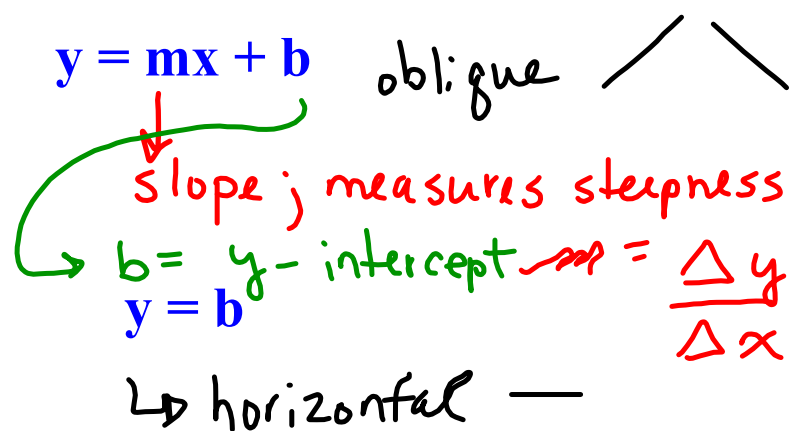 y = mx + b oblique
slope ; measures steepness
b = y - intercept m = Δy / Δx
y = b
↳ horizontal —